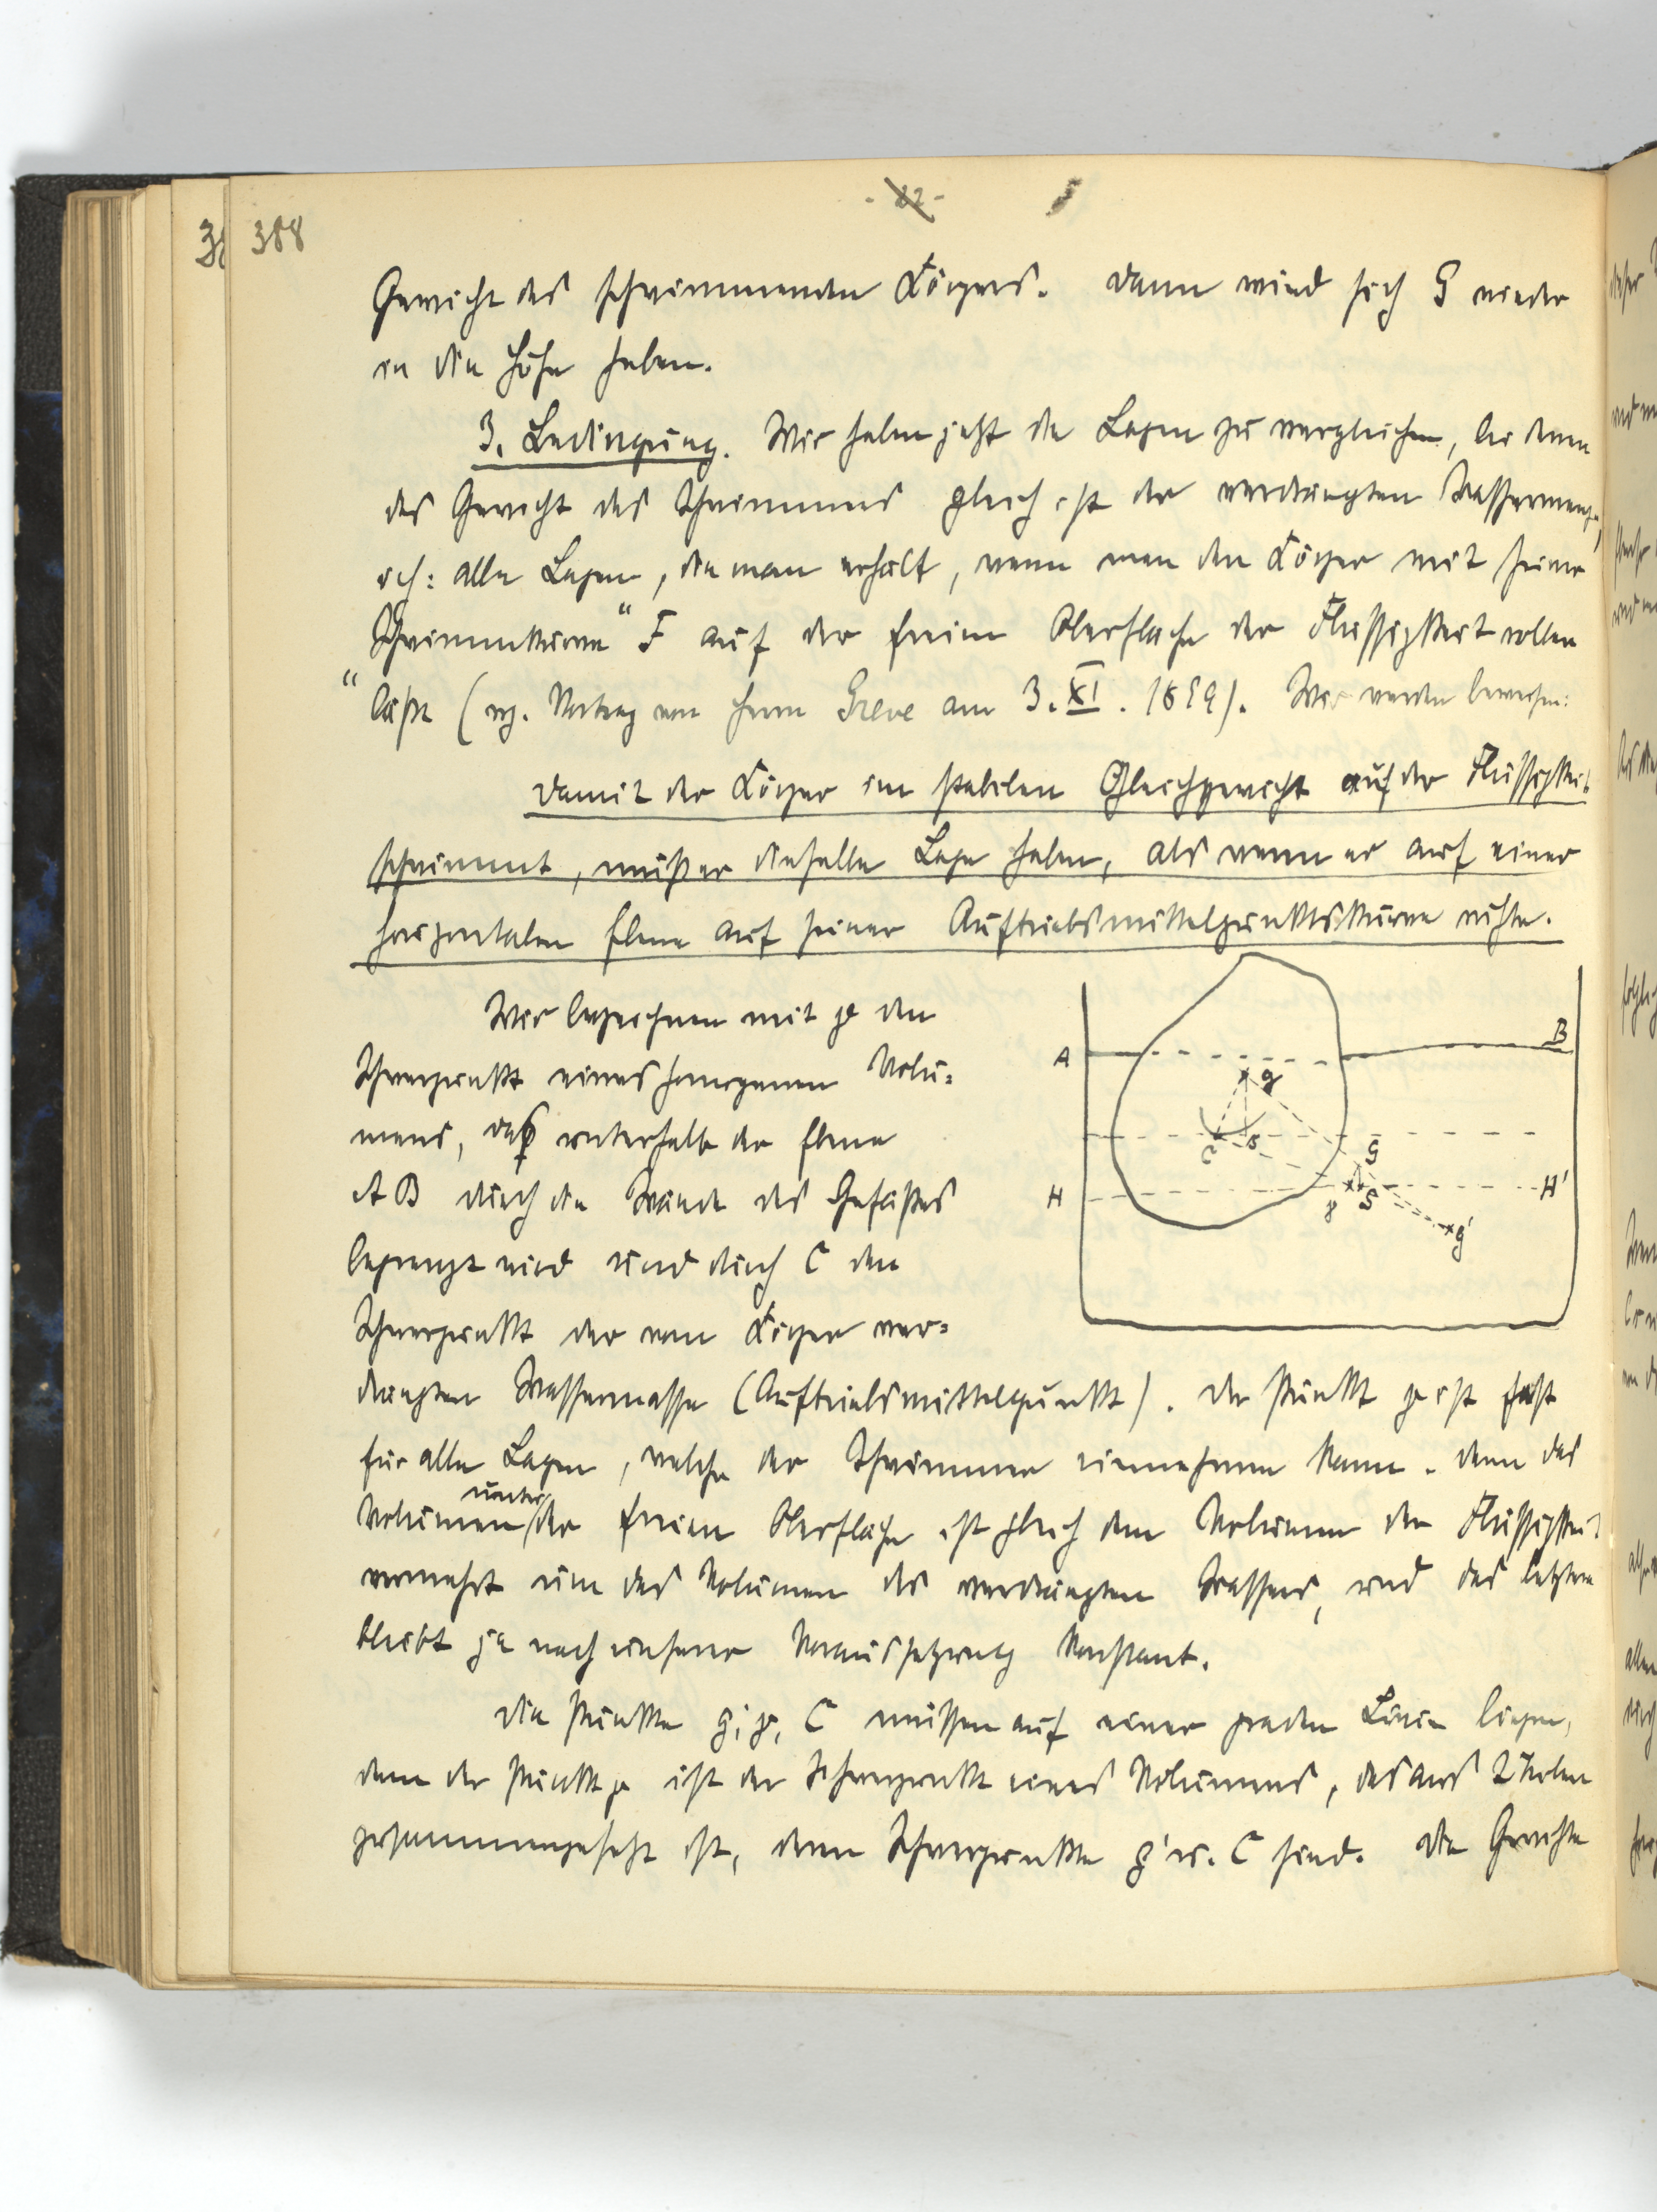 - 22 -
388
Gewicht des schwimmenden Körpers. Dann wird sich G wieder
in die Höhe heben.
3. Bedingung. Wir haben jetzt die Lagen zu vergleichen, bei denen
das Gewicht des Schwimmers gleich ist der verdrängten Wassermenge,
d. h: alle Lagen, die man erhält, wenn man den Körper mit seiner
„Schwimmkurve“ F auf der freien Oberfläche der Flüssigkeit rollen
läßt (vgl. Vortrag von Herrn Greve am 3. XI. 1899). Wir werden beweisen:
Damit der Körper im stabilen Gleichgewicht auf der Flüssigkeit
schwimmt, muß er dieselbe Lage haben, als wenn er auf einer
horizontalen Ebene auf seiner Auftriebsmittelpunktskurve ruhte.
Wir bezeichnen mit g den
Schwerpunkt eines homogenen Volu-
mens, das unterhalb der Ebene
AB durch die Wände des Gefäßes
begrenzt wird und durch C den
Schwerpunkt der vom Körper ver-
drängten Wassermasse (Auftriebsmittelpunkt). Der Punkt g ist fest
für alle Lagen, welche der Schwimmer einnehmen kann. Denn das
Volumen unter der freien Oberfläche ist gleich dem Volumen der Flüssigkeit
vermehrt um das Volumen des verdrängten Wassers, und das letztere
bleibt ja nach unserer Voraussetzung konstant.
Die Punkte g', g, C müssen auf einer graden Linie liegen,
denn der Punkt g ist der Schwerpunkt eines Volumens, das aus 2 Teilen
zusammengesetzt ist, deren Schwerpunkte g' u. C sind. Die Gewichte
A
B
g
C
G
H
H'
S
g'